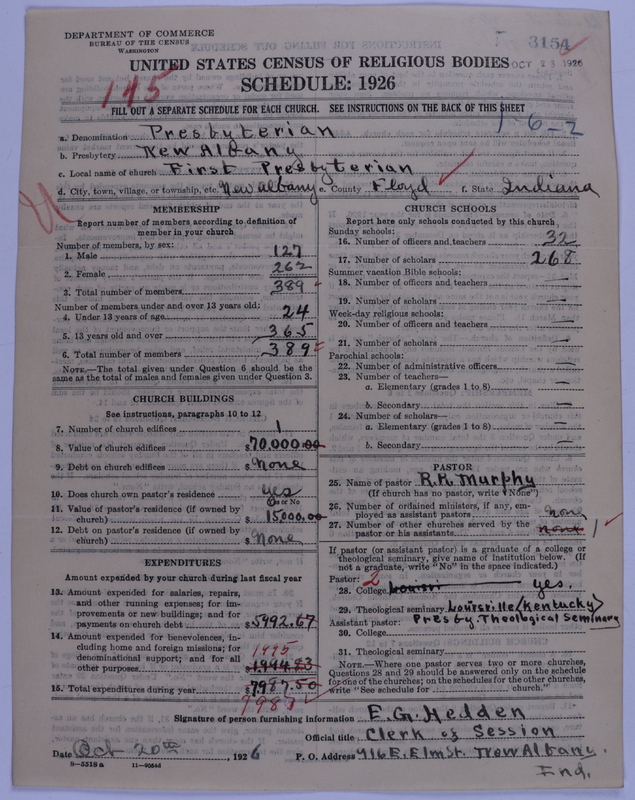 DEPARTMENT OF COMMERCE
BUREAU OF THE CENSUS
WASHINGTON
3154
OCT 23 1926
UNITED STATES CENSUS OF RELIGIOUS BODIES
SCHEDULE: 1926
145
FILL OUT A SEPARATE SCHEDULE FOR EACH CHURCH. SEE INSTRUCTIONS ON THE BACK OF THIS SHEET
1-6-2
a. Denomination Presbyterian
b. Presbytery New Albany
c. Local name of church First Presbyterian
d. City, town, village, or township, etc. New Albany e. County Floyd f. State Indiana
MEMBERSHIP
Report number of members according to definition of
member in your church
Number of members, by sex:
1. Male 127
2. Female 262
3. Total number of members 389
Number of members under and over 13 years old:
4. Under 13 years of age 24
5. 13 years old and over 365
6. Total number of members 389
NOTE.—The total given under Question 6 should be
same as the total of males and females given under Question 3.
CHURCH BUILDINGS
See instructions, paragraphs 10 to 12
7. Number of church edifices 1
8. Value of church edifices $70,000.00
9. Debt on church edifices $None
10. Does church own pastor's residence yes
Yes or No
11. Value of pastor's residence (if owned by
church) $15000.00
12. Debt on pastor's residence (if owned by
church) $None
EXPENDITURES
Amount expended by your church during last fiscal year
13. Amount expended for salaries, repairs,
and other running expenses; for im-
provements or new buildings; and for
payments on church debt $5992.67
14. Amount expended for benevolences, in-
cluding home and foreign missions; for
denominational support; and for all
other purposes 1995 $1994.83
15. Total expenditures during year $7987.50
7987
CHURCH SCHOOLS
Report here only schools conducted by this church
Sunday schools:
16. Number of officers and teachers 32
17. Number of scholars 268
Summer vacation Bible schools:
18. Number of officers and teachers —
19. Number of scholars —
Week-day religious schools:
20. Number of officers and teachers —
21. Number of scholars —
Parochial schools:
22. Number of administrative officers —
23. Number of teachers—
a. Elementary (grades 1 to 8) —
b. Secondary —
24. Number of scholars—
a. Elementary (grades 1 to 8) —
b. Secondary —
PASTOR
25. Name of pastor R.R. Murphy
(If church has no pastor, write "None")
26. Number of ordained ministers, if any, em-
ployed as assistant pastors None
27. Number of other churches served by the
pastor or his assistants None 1
If pastor (or assistant pastor) is a graduate of a college or
theological seminary, give name of institution below. (If
not a graduate, write "No" in the space indicated.)
Pastor: 2
28. College yes.
29. Theological seminary Louisville (Kentucky)
Assistant pastor: Presby. Theological Seminary
30. College
31. Theological seminary
NOTE.—Where one pastor serves two or more churches,
Questions 28 and 29 should be answered only on the schedule
for one of the churches; on the schedules for the other churches,
write "See schedule for church."
Signature of person furnishing information E.G. Hedden
Official title Clerk of Session
Date Oct 20th, 1926 P. O. Address 916 E. Elm St. New Albany.
Ind.
9-5518a 11-9064d